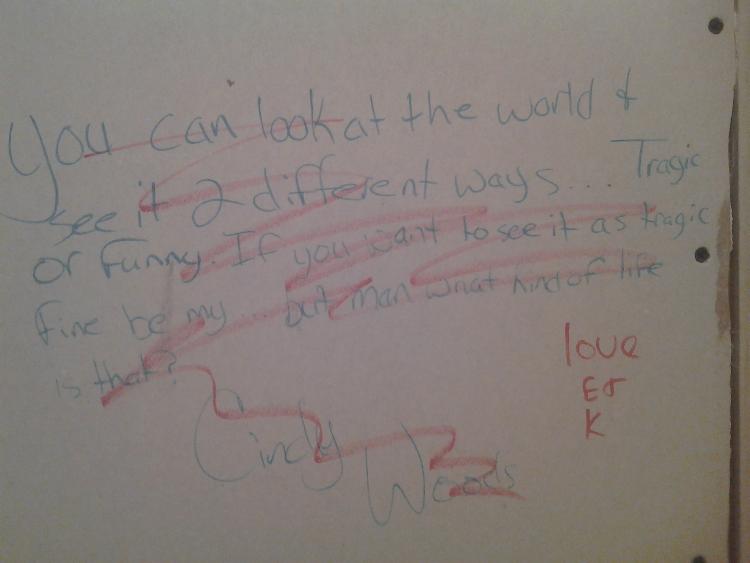 You can look at the world &
see it 2 different ways... Tragic
or funny. If you want to see it as tragic
fine be my... but man what kind of life
is that?
love
E&
K
Cindy Woods